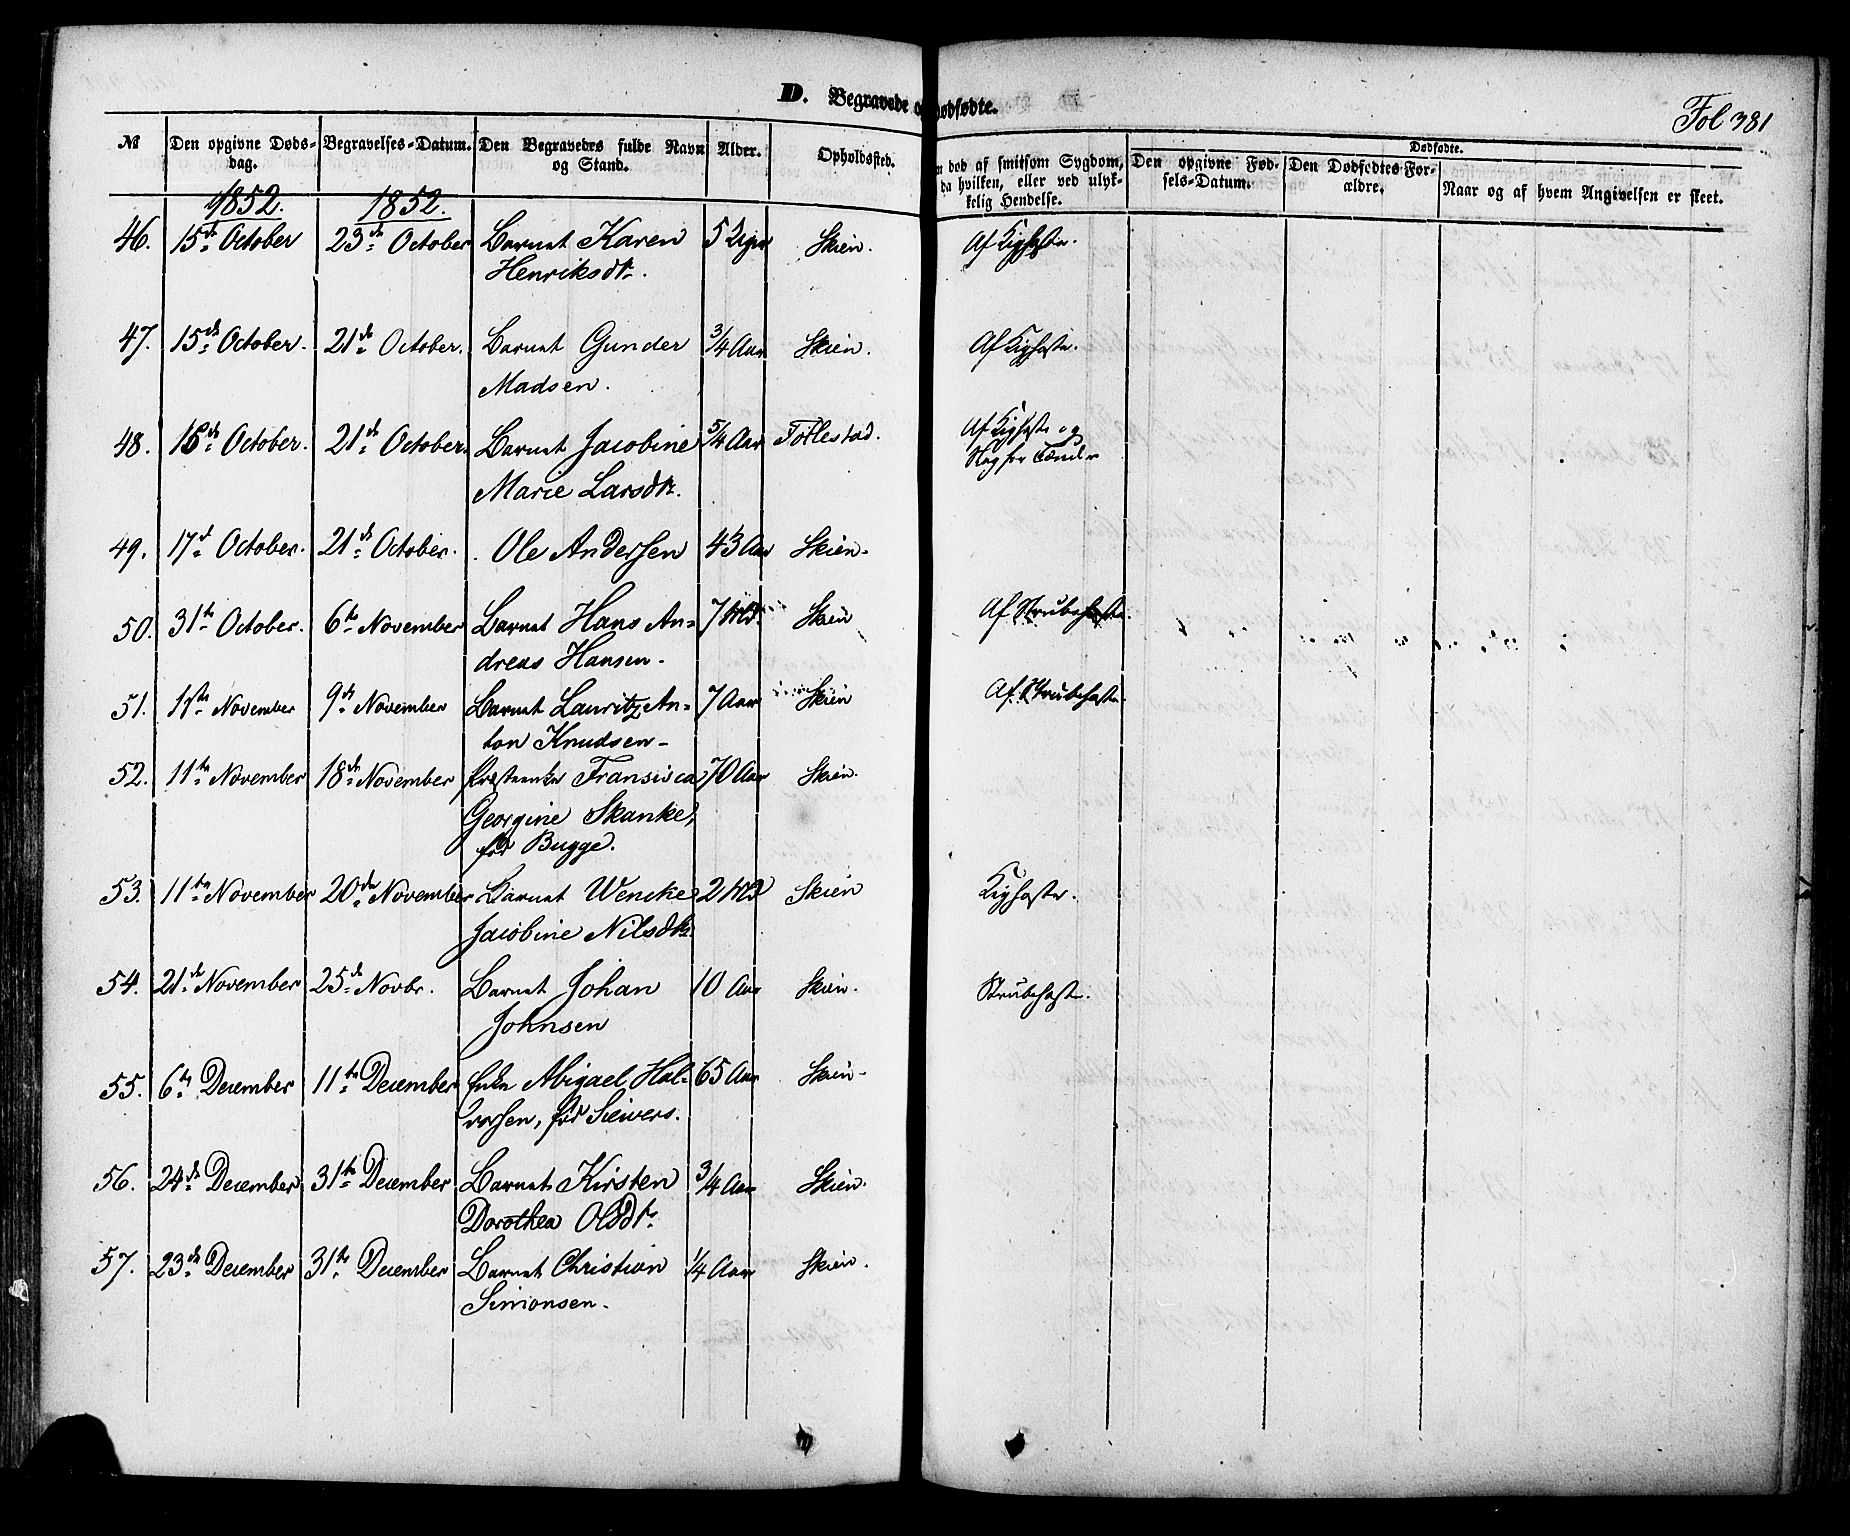 D. Begravede og Dødfødte.
Fol 381
№
Den opgivne Døds-
dag.
Begravelses-Datum.
Den Begravedes fulde Navn
og Stand.
Alder.
Opholdssted.
død af smitsom Sygdom,
da hvilken, eller ved ulyk-
kelig Hendelse.
Dødfødte.
Den opgivne Fød-
sels-Datum.
Den Dødfødtes For-
ældre.
Naar og af hvem Angivelsen er skeet.
1852. 1852.
46. 15de October 23de October Barnet Karen 5 Uger Skien. Af Kighoste.
Henriksdtr.
47. 15de October. 21de October. Barnet Gunder 3/4 Aar Skien. Af Kighoste.
Madsen.
48. October. 21de October. Barnet Jacobine 5/4 Aar Follestad. Af Kighoste og
Marie Larsdtr. Slag for Tænder
49. 17de October. 21de October. Ole Andersen 43 Aar Skien.
50. 31te October. 6te November Barnet Hans An- 7 Md. Skien Af Strubehoste.
dreas Hansen.
51. November 9de November Barnet Lauritz An- 7 Aar Skien Af Strubehoste.
ton Knudsen
52. 11te November 18de November Fransisca 70 Aar Skien.
Georgine Skanke,
fød Bugge.
53. 11te November 20de November Barnet Wencke 2 Md Skien Kighoste.
Jacobine Nilsdtr.
54. 21de November 25de Novbr. Barnet Johan 10 Aar Skien. Strubehoste.
Johnsen
55. 6te December 11te December Enke Abigael Hal- 65 Aar Skien.
vorsen, fød Siewers.
56. 24de December 31te December Barnet Kirsten 3/4 Aar Skien.
Dorothea Olsdtr.
57. 23de December 31te December Barnet Christian 1/4 Aar Skien.
Simonsen.